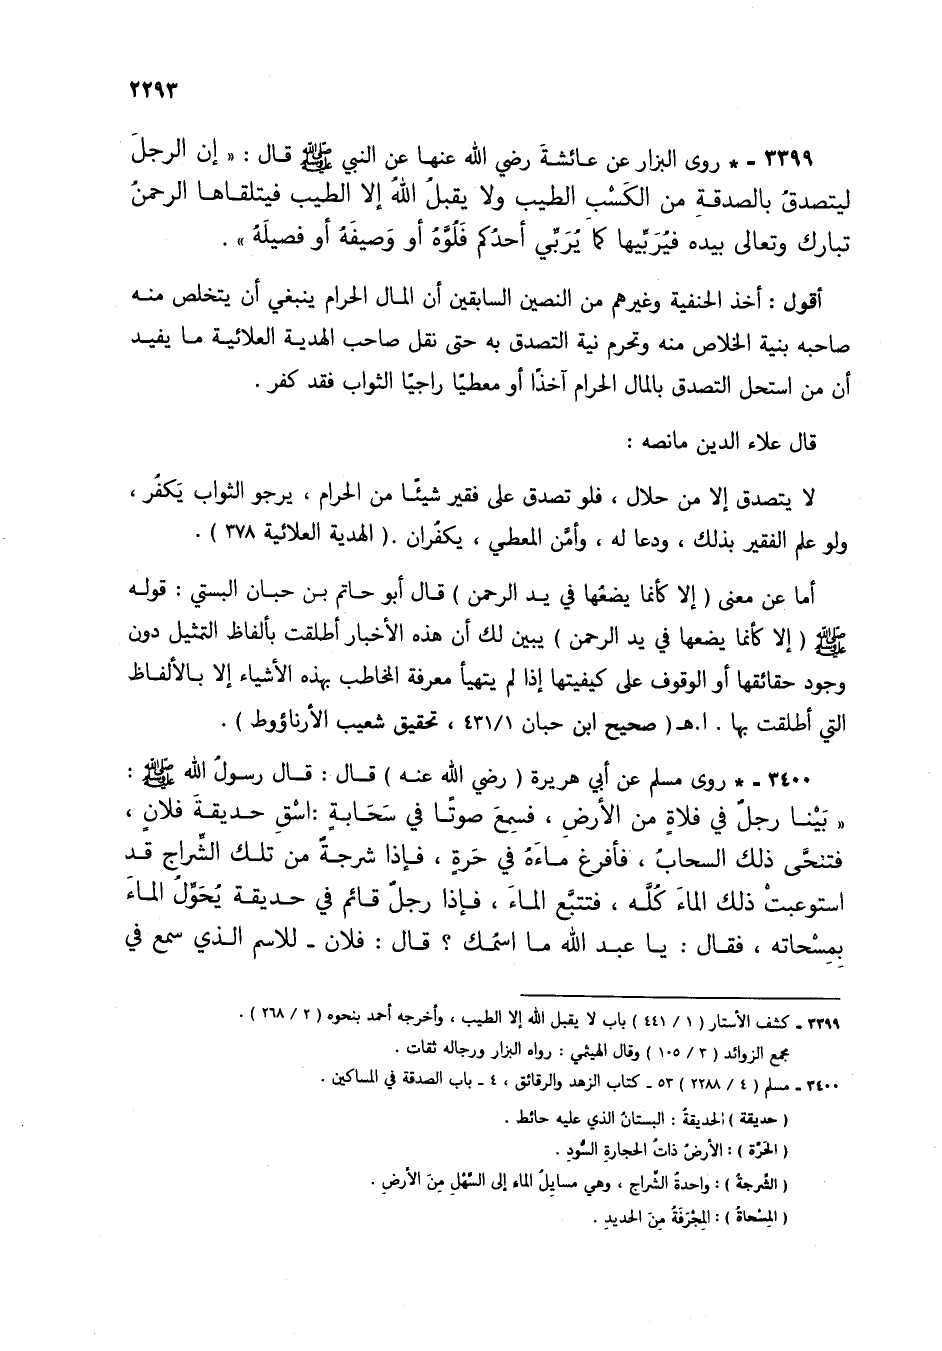 ٢٢٩٣
٣٣٩٩ - * روى البزار عن عائشةَ رضي الله عنها عن النبي ﷺ قال : « إن الرجلَ
ليتصدقُ بالصدقةِ من الكَسْبِ الطيب ولا يقبلُ اللهُ إلا الطيب فيتلقاها الرحمنُ
تبارك وتعالى بيده فيُرَبِّيها كما يُرَبِّي أحدُكم فَلُوَّهُ أو وَصيفَهُ أو فصيلَهُ » .
أقول : أخذ الحنفية وغيرهم من النصين السابقين أن المال الحرام ينبغي أن يتخلص منه
صاحبه بنية الخلاص منه وتحرم نية التصدق به حتى نقل صاحب الهدية العلائية ما يفيد
أن من استحل التصدق بالمال الحرام آخذًا أو معطيًا راجيًا الثواب فقد كفر .
قال علاء الدين مانصه :
لا يتصدق إلا من حلال ، فلو تصدق على فقير شيئًا من الحرام ، يرجو الثواب يَكفُر ،
ولو علم الفقير بذلك ، ودعا له ، وأمَّن المعطي ، يكفُران .( الهدية العلائية ٣٧٨ ) .
أما عن معنى ( إلا كأنما يضعُها في يد الرحمن ) قال أبو حاتم بن حبان البستي : قوله
ﷺ ( إلا كأنما يضعها في يد الرحمن ) يبين لك أن هذه الأخبار أطلقت بألفاظ التمثيل دون
وجود حقائقها أو الوقوف على كيفيتها إذا لم يتهيأ معرفة المخاطب بهذه الأشياء إلا بالألفاظ
التي أطلقت بها . ا.هـ( صحيح ابن حبان ٤٣١/١ ، تحقيق شعيب الأرناؤوط ) .
٣٤٠٠ - * روى مسلم عن أبي هريرة ( رضي الله عنه ) قال : قال رسولُ الله ﷺ :
« بَيْنا رجلٌ في فلاةٍ من الأرضِ ، فسمعَ صوتًا في سَحَابةٍ :اسْقِ حديقةَ فلانٍ ،
فتنحَّى ذلك السحابُ ، فأفرغ ماءَهُ في حَرةٍ ، فإذا شرجةٌ من تلك الشِّراج قد
استوعبتْ ذلك الماءَ كُلَّه ، فتتبَّع الماءَ ، فإذا رجلٌ قائم في حديقة يُحَوِّلُ الماءَ
بِمِسْحاته ، فقال : يا عبد الله ما اسمُك ؟ قال : فلان - للاسم الذي سمع في
٣٣٩٩ - كشف الأستار ( ١ / ٤٤١ ) باب لا يقبل الله إلا الطيب ، وأخرجه أحمد بنحوه ( ٢ / ٢٦٨ ) .
مجمع الزوائد ( ٣ / ١٠٥ ) وقال الهيثمي : رواه البزار ورجاله ثقات .
٣٤٠٠ - مسلم ( ٤ / ٢٢٨٨ ) ٥٣ - كتاب الزهد والرقائق ، ٤ - باب الصدقة في المساكين .
( حديقة ) الحديقةُ : البستانُ الذي عليه حائط .
( الحَرَّة ) : الأرضُ ذاتُ الحجارةِ السُّودِ .
( الشَّرجةُ ) : واحدةُ الشِّراج ، وهي مسايلُ الماء إلى السَّهْلِ مِنَ الأرضِ .
( المِسْحاةُ ) : المِجْرَفَةُ مِنَ الحديدِ .